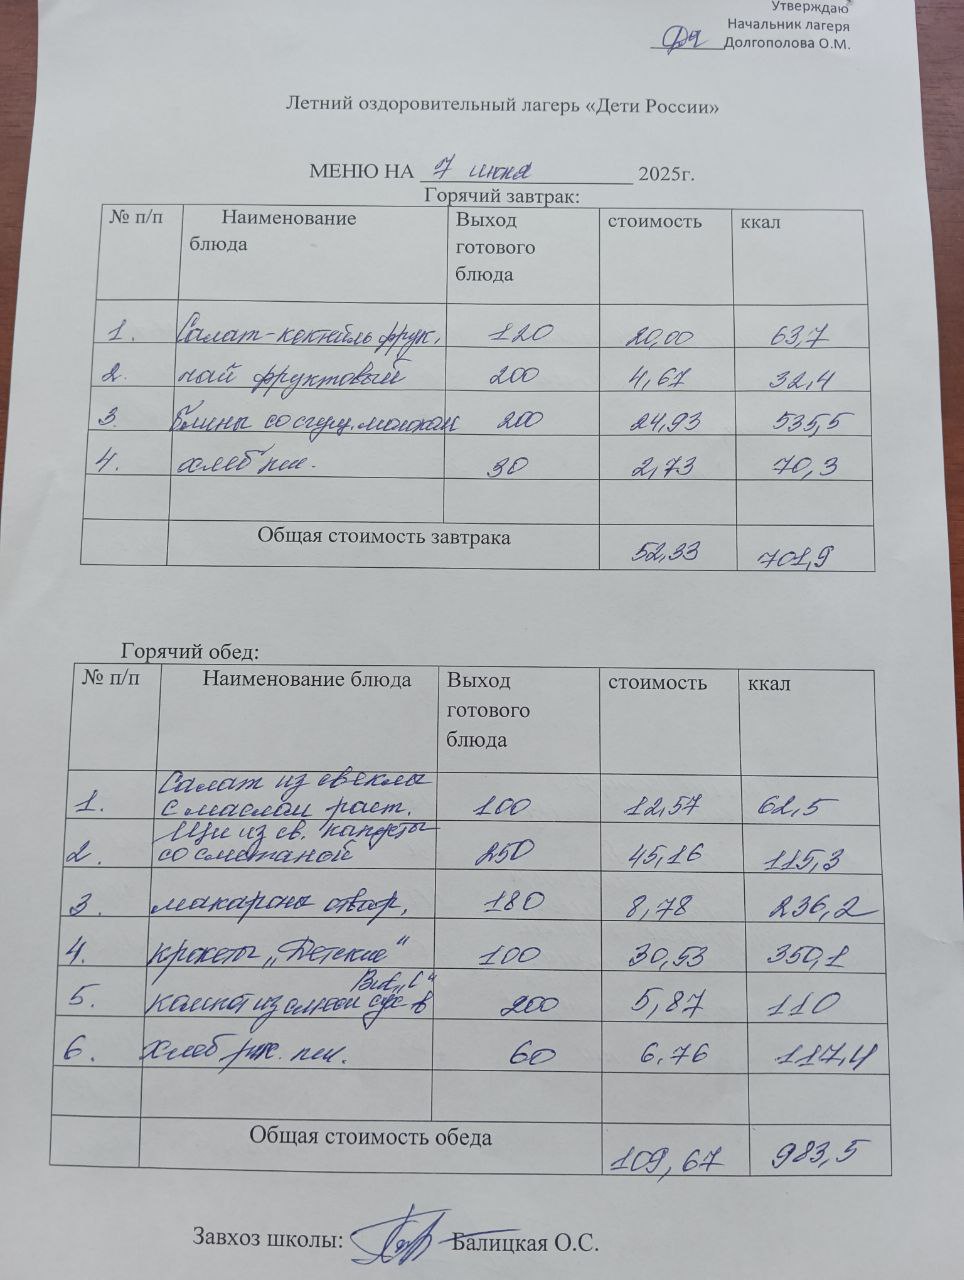 Утверждаю
Начальник лагеря
Долгополова О.М.
Летний оздоровительный лагерь «Дети России»
МЕНЮ НА 7 июня 2025г.
Горячий завтрак:
№ п/п Наименование блюда Выход готового блюда стоимость ккал
1. Салат-коктейль фрук. 120 20,00 63,7
2. чай фруктовый 200 4,67 32,4
3. блины со сгущ. молоком 200 24,93 535,5
4. хлеб пш. 30 2,73 70,3
Общая стоимость завтрака 52,33 701,9
Горячий обед:
№ п/п Наименование блюда Выход готового блюда стоимость ккал
1. Салат из свеклы с маслом раст. 100 12,57 62,5
2. Щи из св. капусты со сметаной 250 45,16 115,3
3. макароны отвар. 180 8,78 236,2
4. крокеты „Детские“ 100 30,53 350,1
5. компот из смеси сух-в Вит„С“ 200 5,87 110
6. Хлеб рж. пш. 60 6,76 117,4
Общая стоимость обеда 109,67 983,5
Завхоз школы: Балицкая О.С.